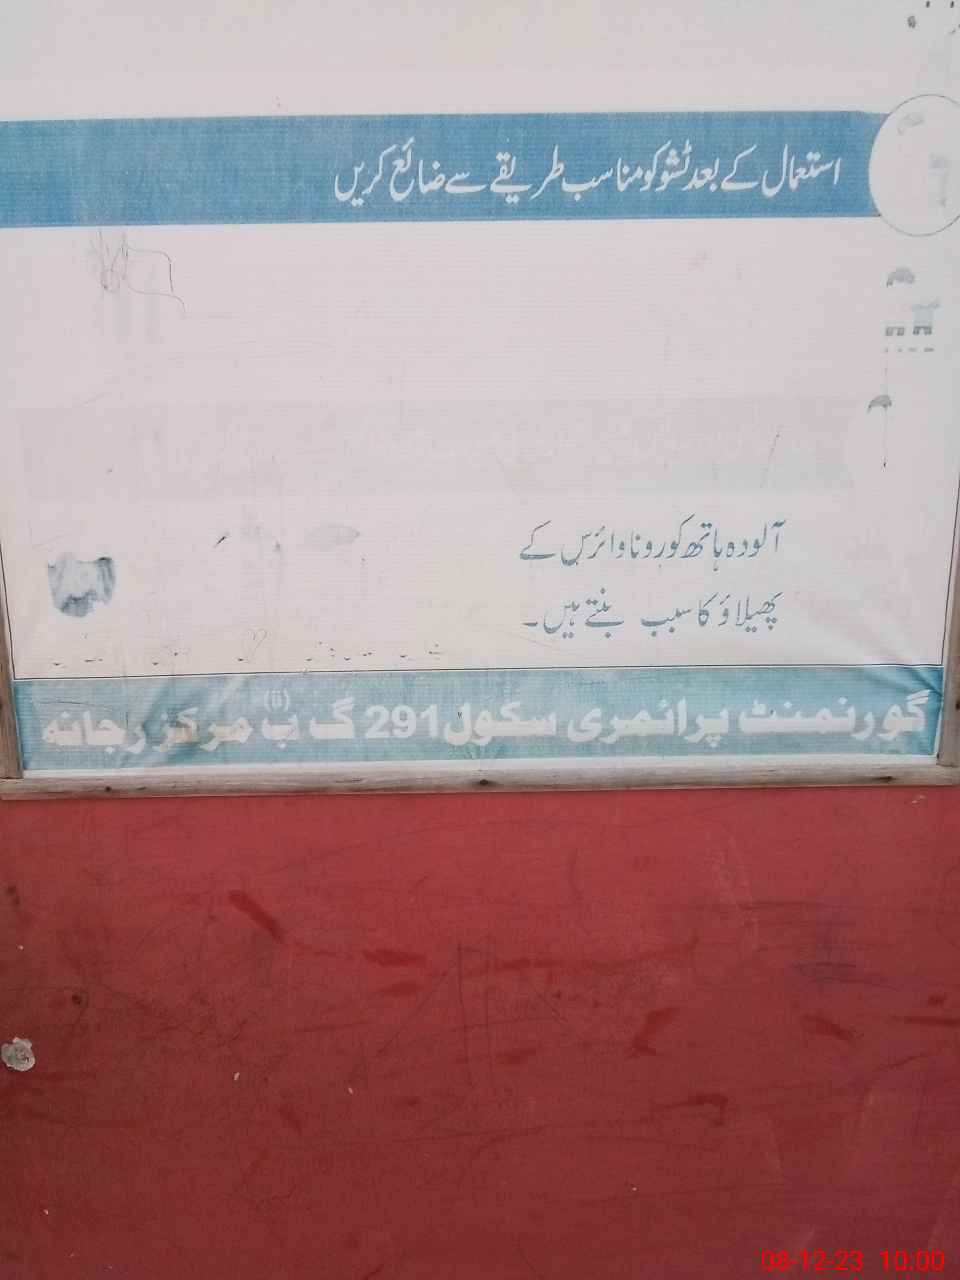 استعمال کے بعد ٹشو کو مناسب طریقے سے ضائع کریں
آلودہ ہاتھ کورونا وائرس کے
پھیلاؤ کا سبب بنتے ہیں۔
گورنمنٹ پرائمری سکول 291 گ ب (II) مرکز رجانہ
08-12-23 10:00